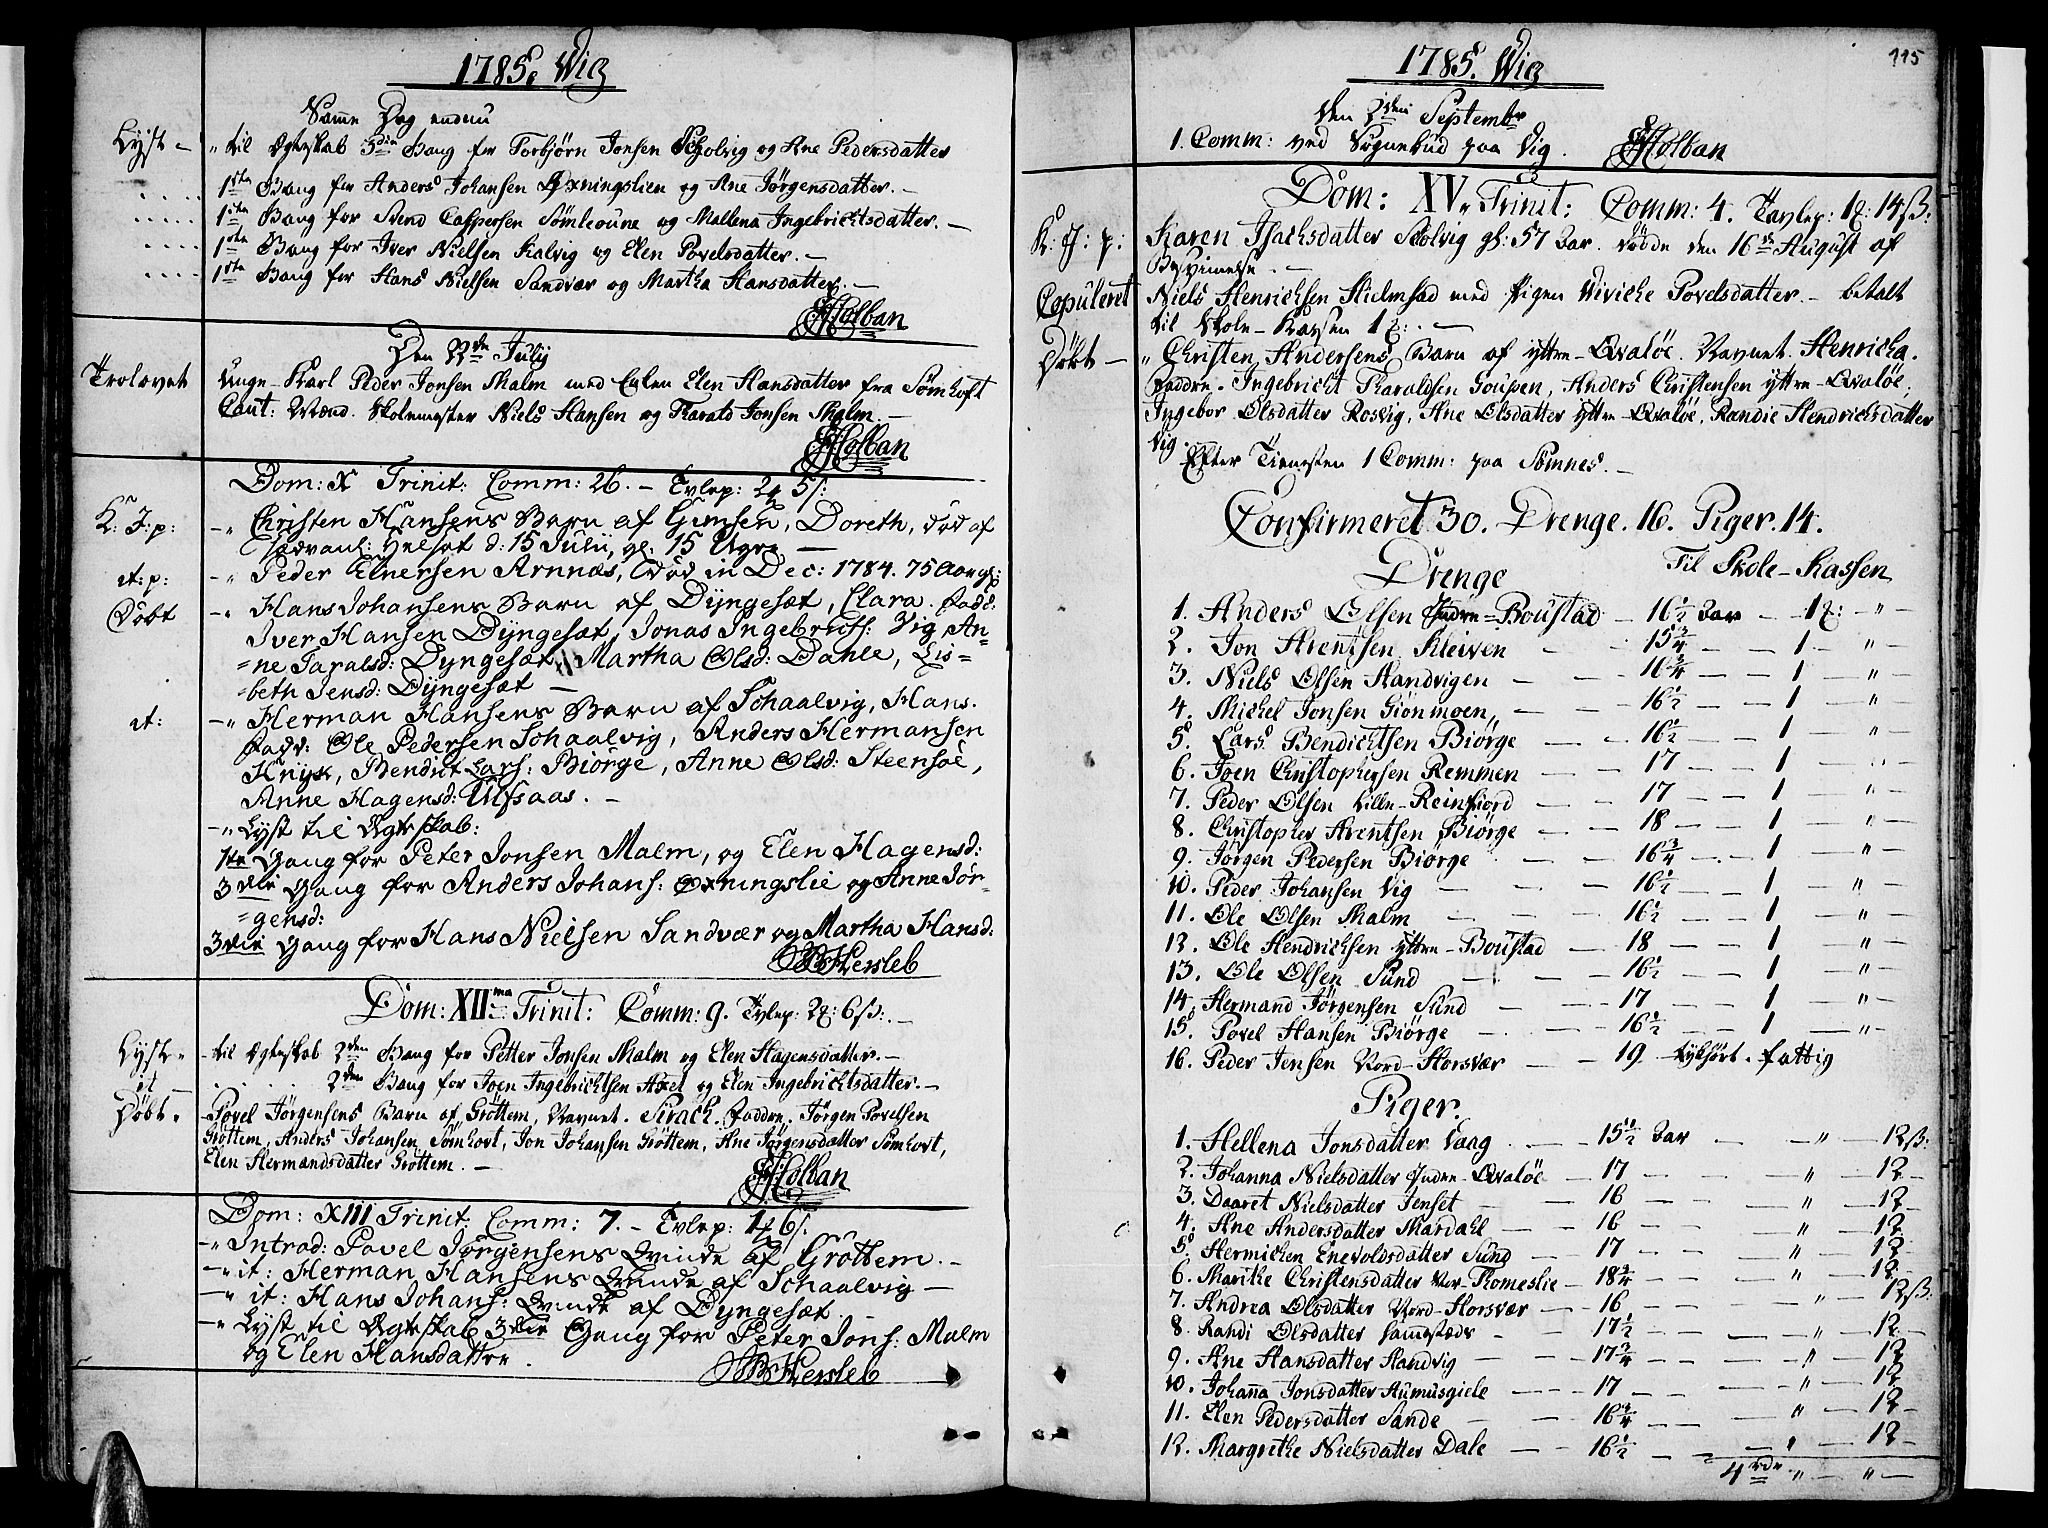 1785. Wig
Samme Dag endnu
Lyst - " til Ægteskab 3die Gang for Torbjørn Jonsen Skolvig og Ane Pedersdatter
1ste Gang for Anders Johansen Øxningslien og Ane Jørgensdatter. -
1ste Gang for Svend Caspersen Sømleoune og Mallena Ingebrichtsdatter. -
1ste Gang for Iver Nielsen Kalvig og Elen Povelsdatter. -
1ste Gang for Hans Nielsen Sandvær og Martha Hansdatter. -
Holban
Den 22de July
Trolovet Unge-Karl Peder Jonsen Malm med Enken Elen Hansdatter fra Sømhoft
Caut: Mænd. Skolemester Niels Hansen og Harald Jonsen Malm. -
Holban
Dom: X Trinit: Comm: 26. - Tvlep: 2 5 s:
K: J: p: -" Christen Hansens Barn af Gimsen, Doreth, død af
sædvanl: Helsot d: 15 Julii, gl: 15 Uger -
it: p: -" Peder Elnersen Arnnæs, Død in Dec: 1784. 75 Aar gl:
Døbt -" Hans Johansens Barn af Dyngesæt, Clara. Fadd:
Iver Hansen Dyngesæt, Jonas Ingebricts: Vig, An-
=ne Taralsd: Dyngesæt, Martha Olsd: Dahle, Lis=
=beth Jensd: Dyngesæt -
it: -" Herman Hansens Barn af Schaalvig, Hans.
Fadd: Ole Pedersen Schaalvig, Anders Hermansen
Knysk, Bendict Lars: Biørge, Anne Olsd: Steensøe,
Anne Hagensd: Ulfsaas. -
-" Lyst til Ægteskab:
1te Gang for Peter Jonsen Malm, og Elen Hagensd:
3die Gang for Anders Johans: Øxningslie og Anne Jør-
=gensd:
3die Gang for Hans Nielsen Sandvær og Martha Hansd:
Hersleb
Dom: XIIma Trinit: Comm: 9. Tvlep: 2: 6 ß: -
Lyst - til Ægteskab 2den Gang for Petter Jonsen Malm og Elen Hagensdatter. -
it 2den Gang for Joen Ingebrichtsen Axel og Elen Ingebrichtsdatter. -
Døbt - Povel Jørgensens Barn af Grøttem, Navnet. Sirach. Faddre. Jørgen Povelsen
Grøttem, Anders Johansen Sømhovt, Jon Johansen Grøttem, Ane Jørgensdatter Sømhovt,
Elen Hermandsdatter Grøttem. -
Holban
Dom: XIII Trinit: Comm: 7. - Tvlep: 1 6 s:
-" Introd: Povel Jørgensens Qvinde af Grøttem. -
-" it: Herman Hansens Qvinde af Schaalvig -
-" it: Hans Johans: Qvinde af Dyngesæt. -
-" Lyst til Ægteskab 3die Gang for Peter Jons: Malm
og Elen Hansdatter.
Hersleb
1785. Wig 115
den 2den Septembr
1. Comm: ved Sognebud paa Vig. Holban
Dom: XV. Trinit: Comm: 4. Tavlep: 1: 14 ß:
K: J: p: Karen Isachsdatter Skolvig gl: 57 Aar. døde den 16de August af
Besvimelse. -
Copuleret Niels Henrichsen Hielmsad med Pigen Viviche Povelsdatter. - betalt
til Skole-Kassen 1: -
Døbt - " Christen Andersens Barn af yttre-Qvaløe. Navnet. Henricha.
Faddre. Ingebricht Haraldsen Goupen, Anders Christensen yttre-Qvaløe,
Ingebor Olsdatter Rosvig, Ane Olsdatter yttre-Qvaløe, Randie Hendrichsdatter
Vig.
Efter Tienesten 1 Comm: paa Sømnes. -
Confirmeret 30. Drenge. 16. Piger. 14.
Drenge Til Skole-Kassen
1. Anders Olsen Indre-Boustad - 16 1/2 Aar - 1: - " -
2. Jon Arentsen Kleiven - 15 3/4 - 1 - " -
3. Niels Olsen Handvigen - 16 3/4 - 1 " -
4. Michel Jonsen Giønmoen, - 16 1/2 - 1 " -
5. Lars Bendichtsen Biørge - 16 1/2 - 1 " -
6. Joen Christophersen Remmen - 17 - 1 - " -
7. Peder Olsen Lille-Reinfiord - 17 - 1 - " -
8. Christopher Arentsen Biørge - 18 - 1 - " -
9. Jørgen Pedersen Biørge - 16 3/4 - 1 - " -
10. Peder Johansen Vig - 16 1/2 - 1 - " -
11. Ole Olsen Malm - 16 1/2 - 1 - " -
12. Ole Hendrichsen yttre-Boustad - 18 - 1 - " -
13. Ole Olsen Sund - 16 1/2 - 1 - " -
14. Hermand Jørgensen Sund - 17 - 1 - " -
15. Povel Hansen Biørge - 16 1/2 - 1 - " -
16. Peder Jensen Nord-Horsvær - 19. tykhørt. fattig
Piger.
1. Hellena Jonsdatter Vaag. - 15 1/2 Aar - " - 12 ß:
2. Johanna Nielsdatter Indre-Qvaløe - 17 - " - 12 -
3. Daaret Nielsdatter Jenset - 16 - " - 12 -
4. Ane Andersdatter Mardahl - 16 - " - 12 -
5. Hermichen Enevoldsdatter Sund - 17 - " - 12 -
6. Maritke Christensdatter Ner-Thomeslie - 18 3/4 - " - 12 -
7. Andrea Olsdatter Nord-Horsvær - 16 - " - 12 ß:
8. Randi Olsdatter sammestæds - 17 1/2 - " - 12 -
9. Ane Hansdatter Handvig - 17 3/4 - " - 12
10. Johanna Jonsdatter Aumusgiele - 17 - " - 12
11. Elen Pedersdatter Sande - 16 3/4 - " - 12 -
12. Margrethe Nielsdatter Dale - 16 1/2 - " - 12 -
4 rdr " - " -